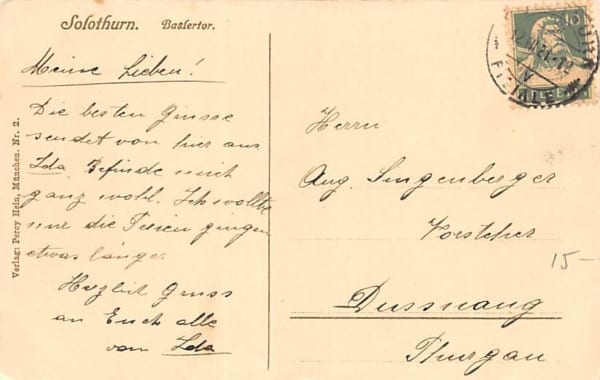 Solothurn. Baslertor.
Meine Lieben!
Die besten Grüsse
sendet von hier aus
Ida. Befinde mich
ganz wohl. Ich wollte
nur die Ferien gingen
etwas länger.
Herzlich Gruss
an Euch alle
von Ida
Verlag: Percy Hein, München. Nr. 2.
10
FILIALE
Herrn
Aug. Singenberger
Vorsteher
Dussnang
Thurgau
15-